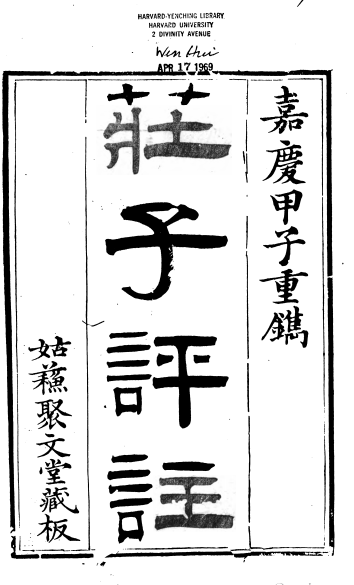 HARVARD-YENCHING LIBRARY
HARVARD UNIVERSITY
2 DIVINITY AVENUE
Wen Hui
APR 17 1969
嘉慶甲子重鐫
莊子評註
姑蘓聚文堂藏板